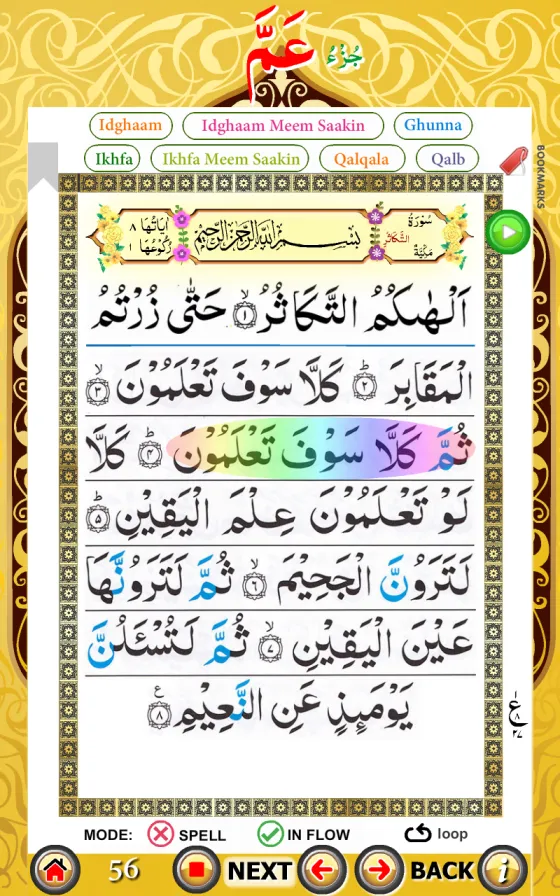 جُزْءُ عَمَّ
Idghaam Idghaam Meem Saakin Ghunna
Ikhfa Ikhfa Meem Saakin Qalqala Qalb
BOOKMARKS
سُوْرَةُ التَّكَاثُرِ مَكِّيَّةٌ
بِسْمِ اللّٰهِ الرَّحْمٰنِ الرَّحِيْمِ
اٰيَاتُهَا ٨
رُكُوْعُهَا ١
اَلْهٰىكُمُ التَّكَاثُرُ ۙ‏﴿۱﴾ حَتّٰى زُرْتُمُ
الْمَقَابِرَ ؕ‏﴿۲﴾ كَلَّا سَوْفَ تَعْلَمُوْنَ ۙ‏﴿۳﴾
ثُمَّ كَلَّا سَوْفَ تَعْلَمُوْنَ ؕ‏﴿۴﴾ كَلَّا
لَوْ تَعْلَمُوْنَ عِلْمَ الْيَقِيْنِ ؕ‏﴿۵﴾
لَتَرَوُنَّ الْجَحِيْمَ ۙ‏﴿۶﴾ ثُمَّ لَتَرَوُنَّهَا
عَيْنَ الْيَقِيْنِ ۙ‏﴿۷﴾ ثُمَّ لَتُسْـَٔلُنَّ
يَوْمَىِٕذٍ عَنِ النَّعِيْمِ ﴿۸﴾ ع
١
ع
٨
٢٧
MODE: SPELL IN FLOW loop
56 NEXT BACK i